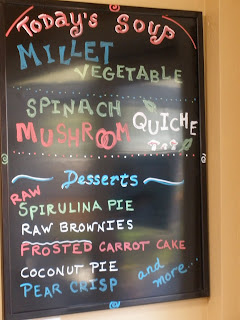 Today's Soup
MILLET
VEGETABLE
SPINACH
MUSHROOM QUICHE
Desserts
RAW
SPIRULINA PIE
RAW BROWNIES
FROSTED CARROT CAKE
COCONUT PIE
PEAR CRISP and more...